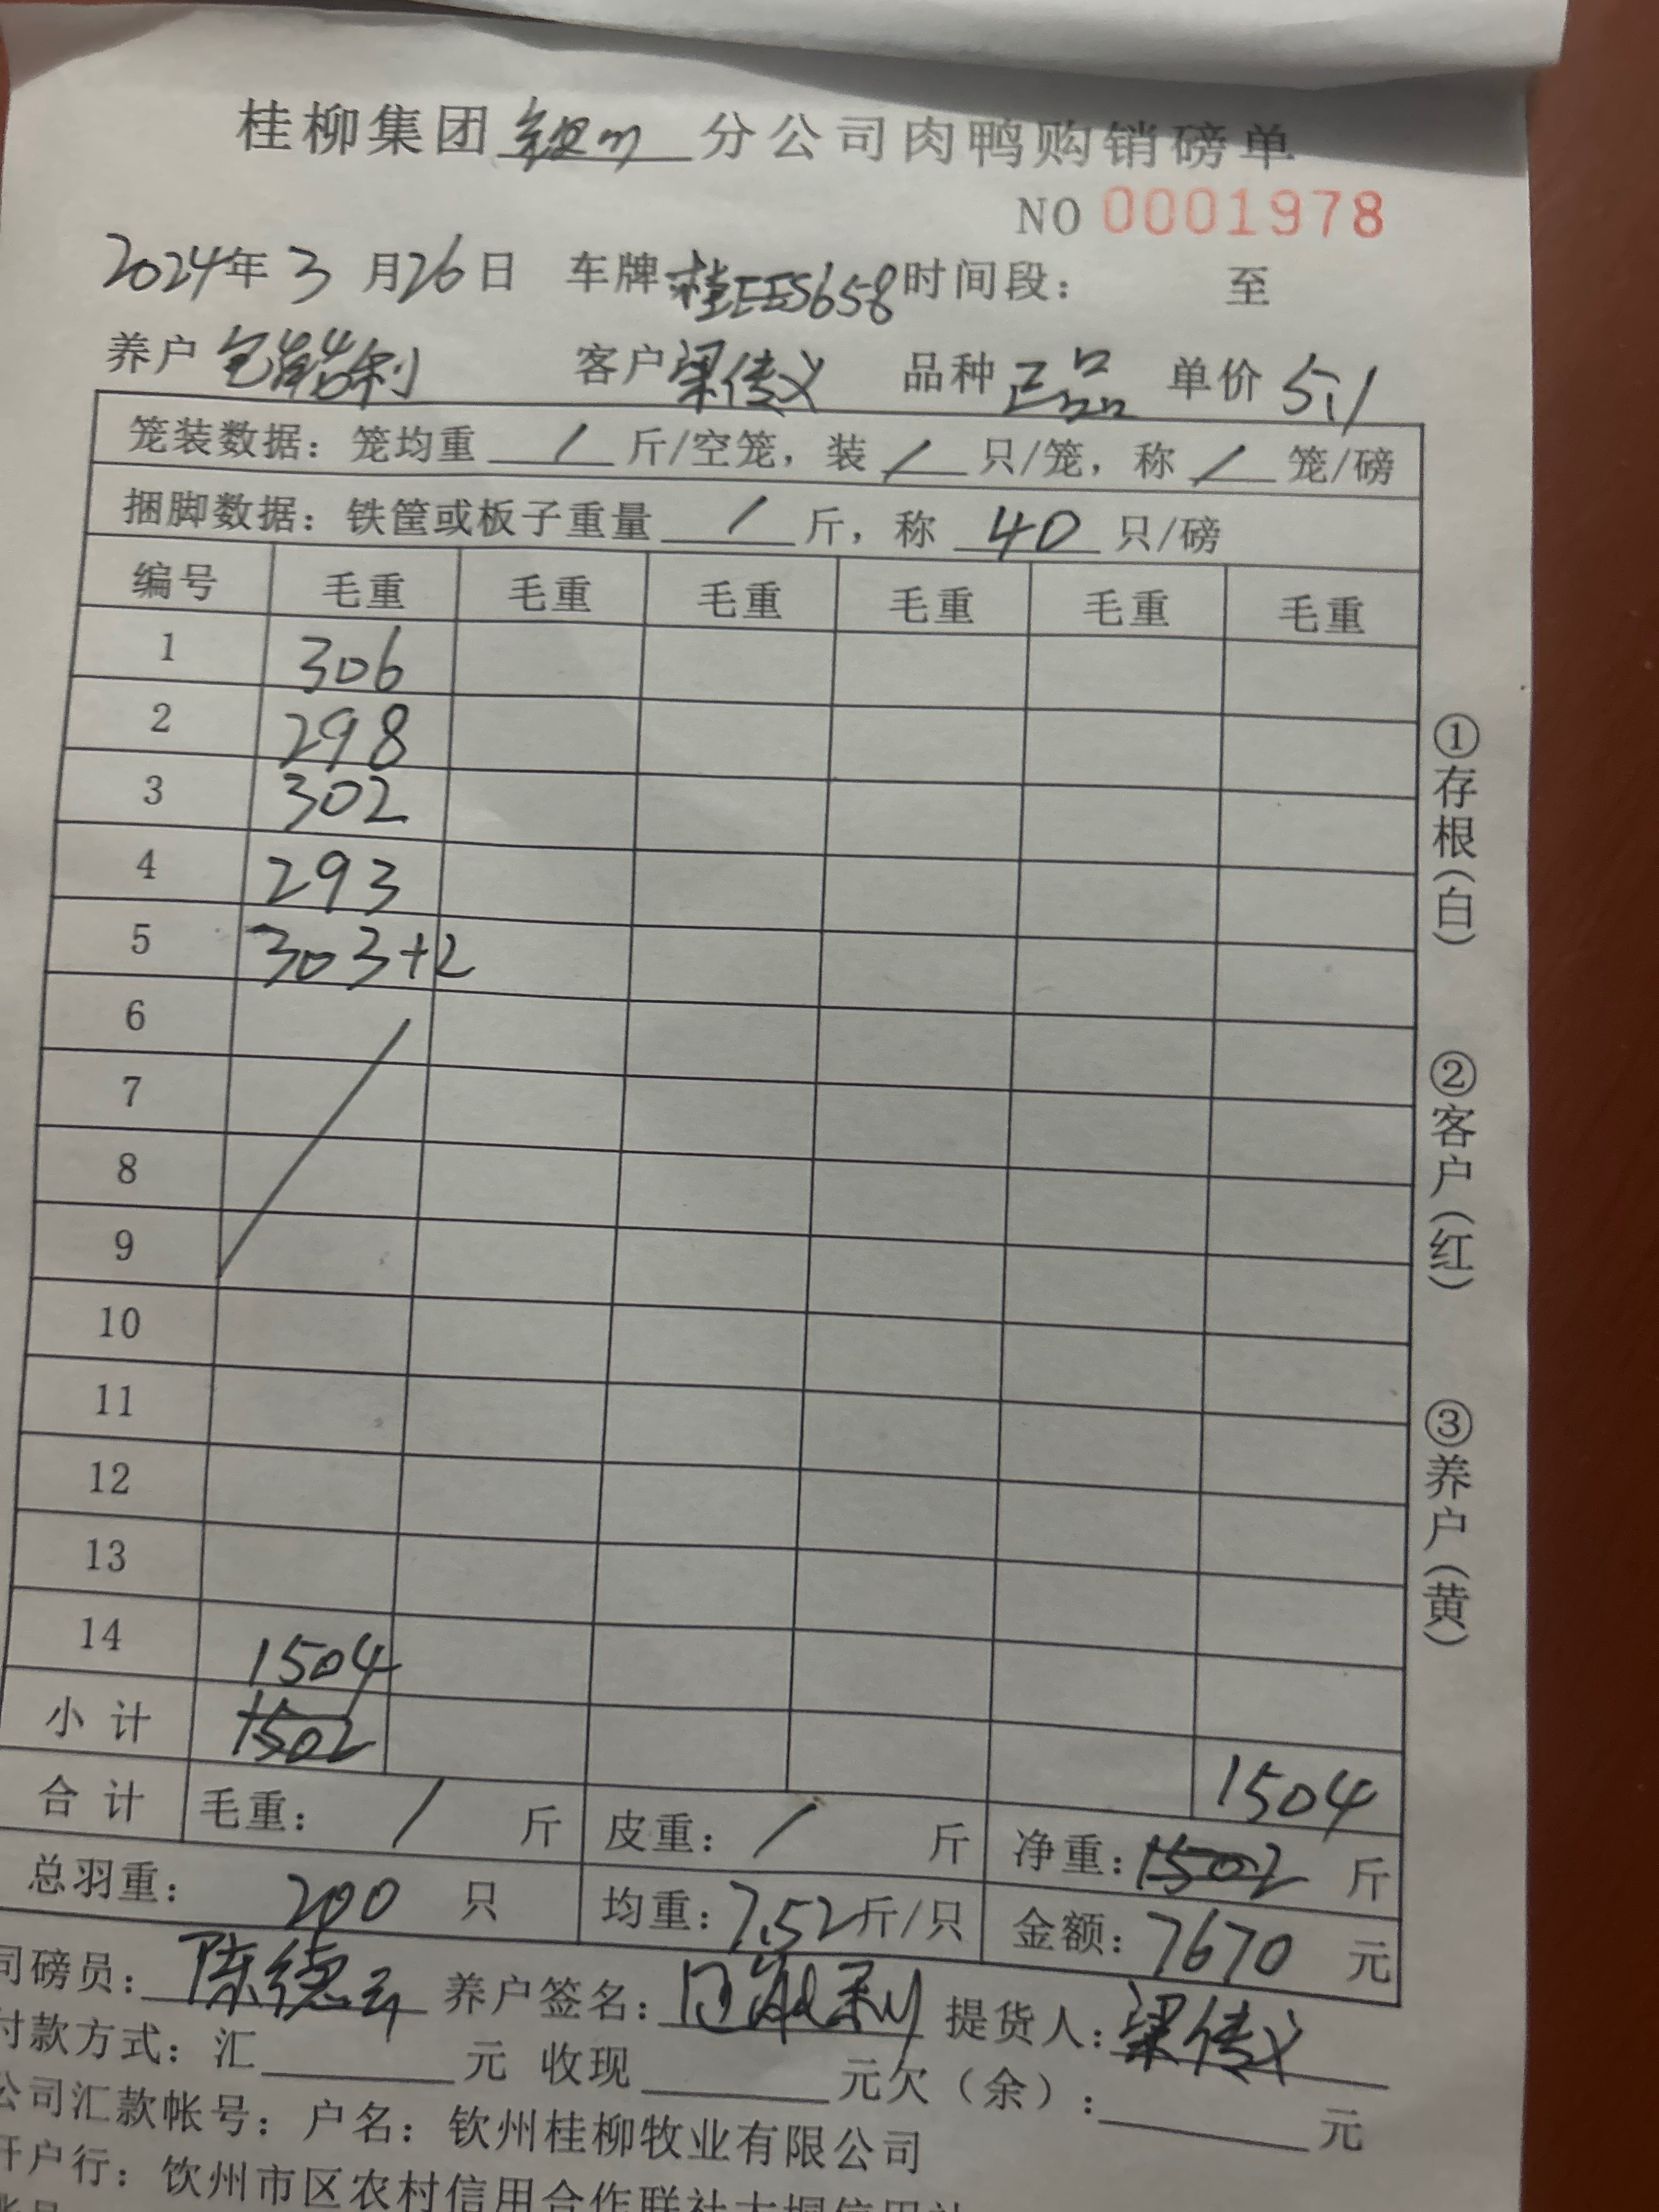 桂柳集团钦州分公司肉鸭购销磅单
NO 0001978
2024年3月26日 车牌桂EES658时间段： 至
养户 客户梁传义 品种正品 单价5.1
笼装数据：笼均重 / 斤/空笼，装 / 只/笼，称 / 笼/磅
捆脚数据：铁筐或板子重量 / 斤，称 40 只/磅
编号 毛重 毛重 毛重 毛重 毛重 毛重
1 306
2 298
3 302
4 293
5 303+2
6
7
8
9
10
11
12
13
14 1504
小计 1502 1504
合计 毛重： / 斤 皮重： / 斤 净重：1502 斤
总羽重： 200 只 均重：7.52斤/只 金额：7670 元
司磅员：陈德云 养户签名： 提货人：梁传义
付款方式：汇 元 收现 元欠（余）： 元
公司汇款帐号：户名：钦州桂柳牧业有限公司
开户行：钦州市区农村信用合作联社大垌信用社
①存根（白）
②客户（红）
③养户（黄）